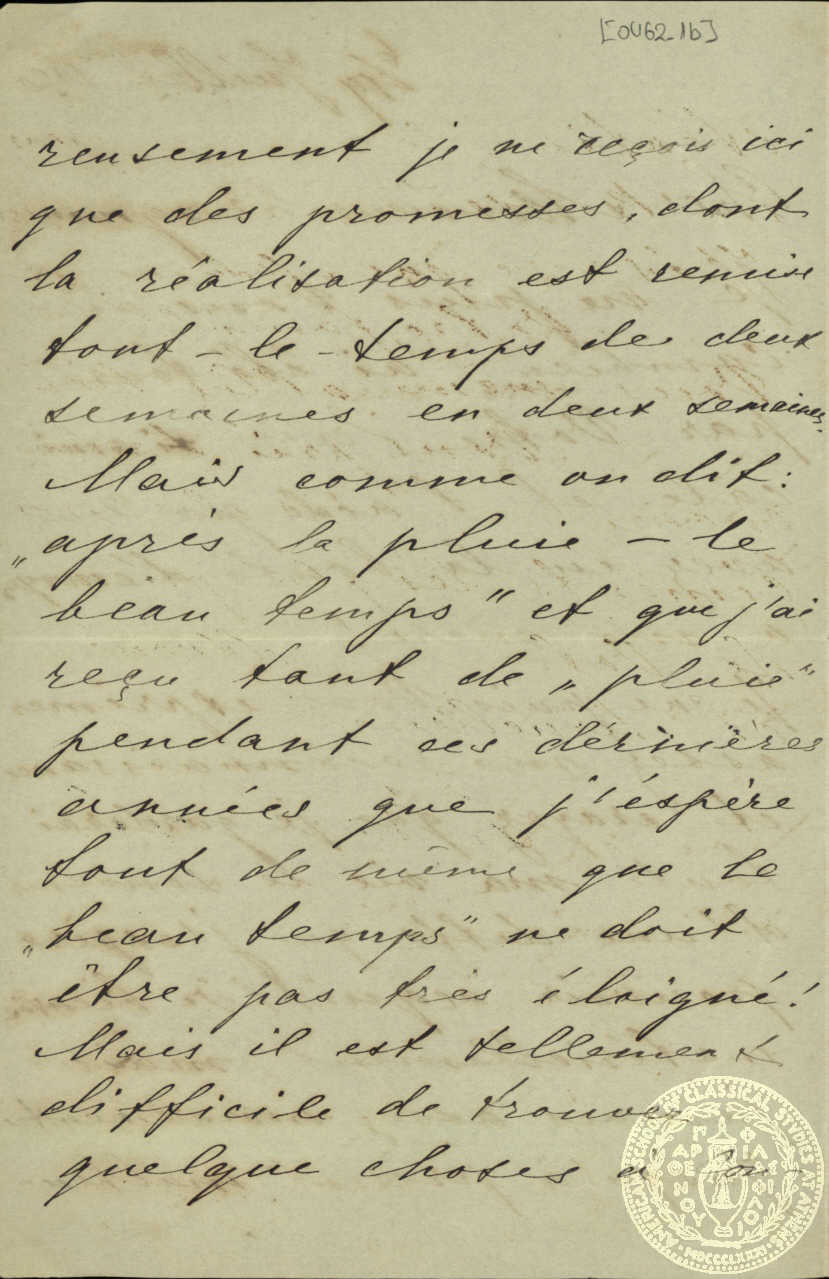 [OU62_1b]
reusement je ne reçois ici
que des promesses, dont
la réalisation est remise
tout-le-temps de deux
semaines en deux semaines.
Mais comme on dit:
„après la pluie – le
beau temps" et que j'ai
reçu tant de „pluie"
pendant ces dérnières
années que j'éspère
tout de même que le
„beau temps" ne doit
être pas très éloigné!
Mais il est tellement
difficile de trouver
quelque choses à
AMERICAN SCHOOL OF CLASSICAL STUDIES AT ATHENS
MDCCCLXXXI
ΠΑΡΘΕΝΟΥ ΦΙΛΑΣ ΦΙΛΟΙ